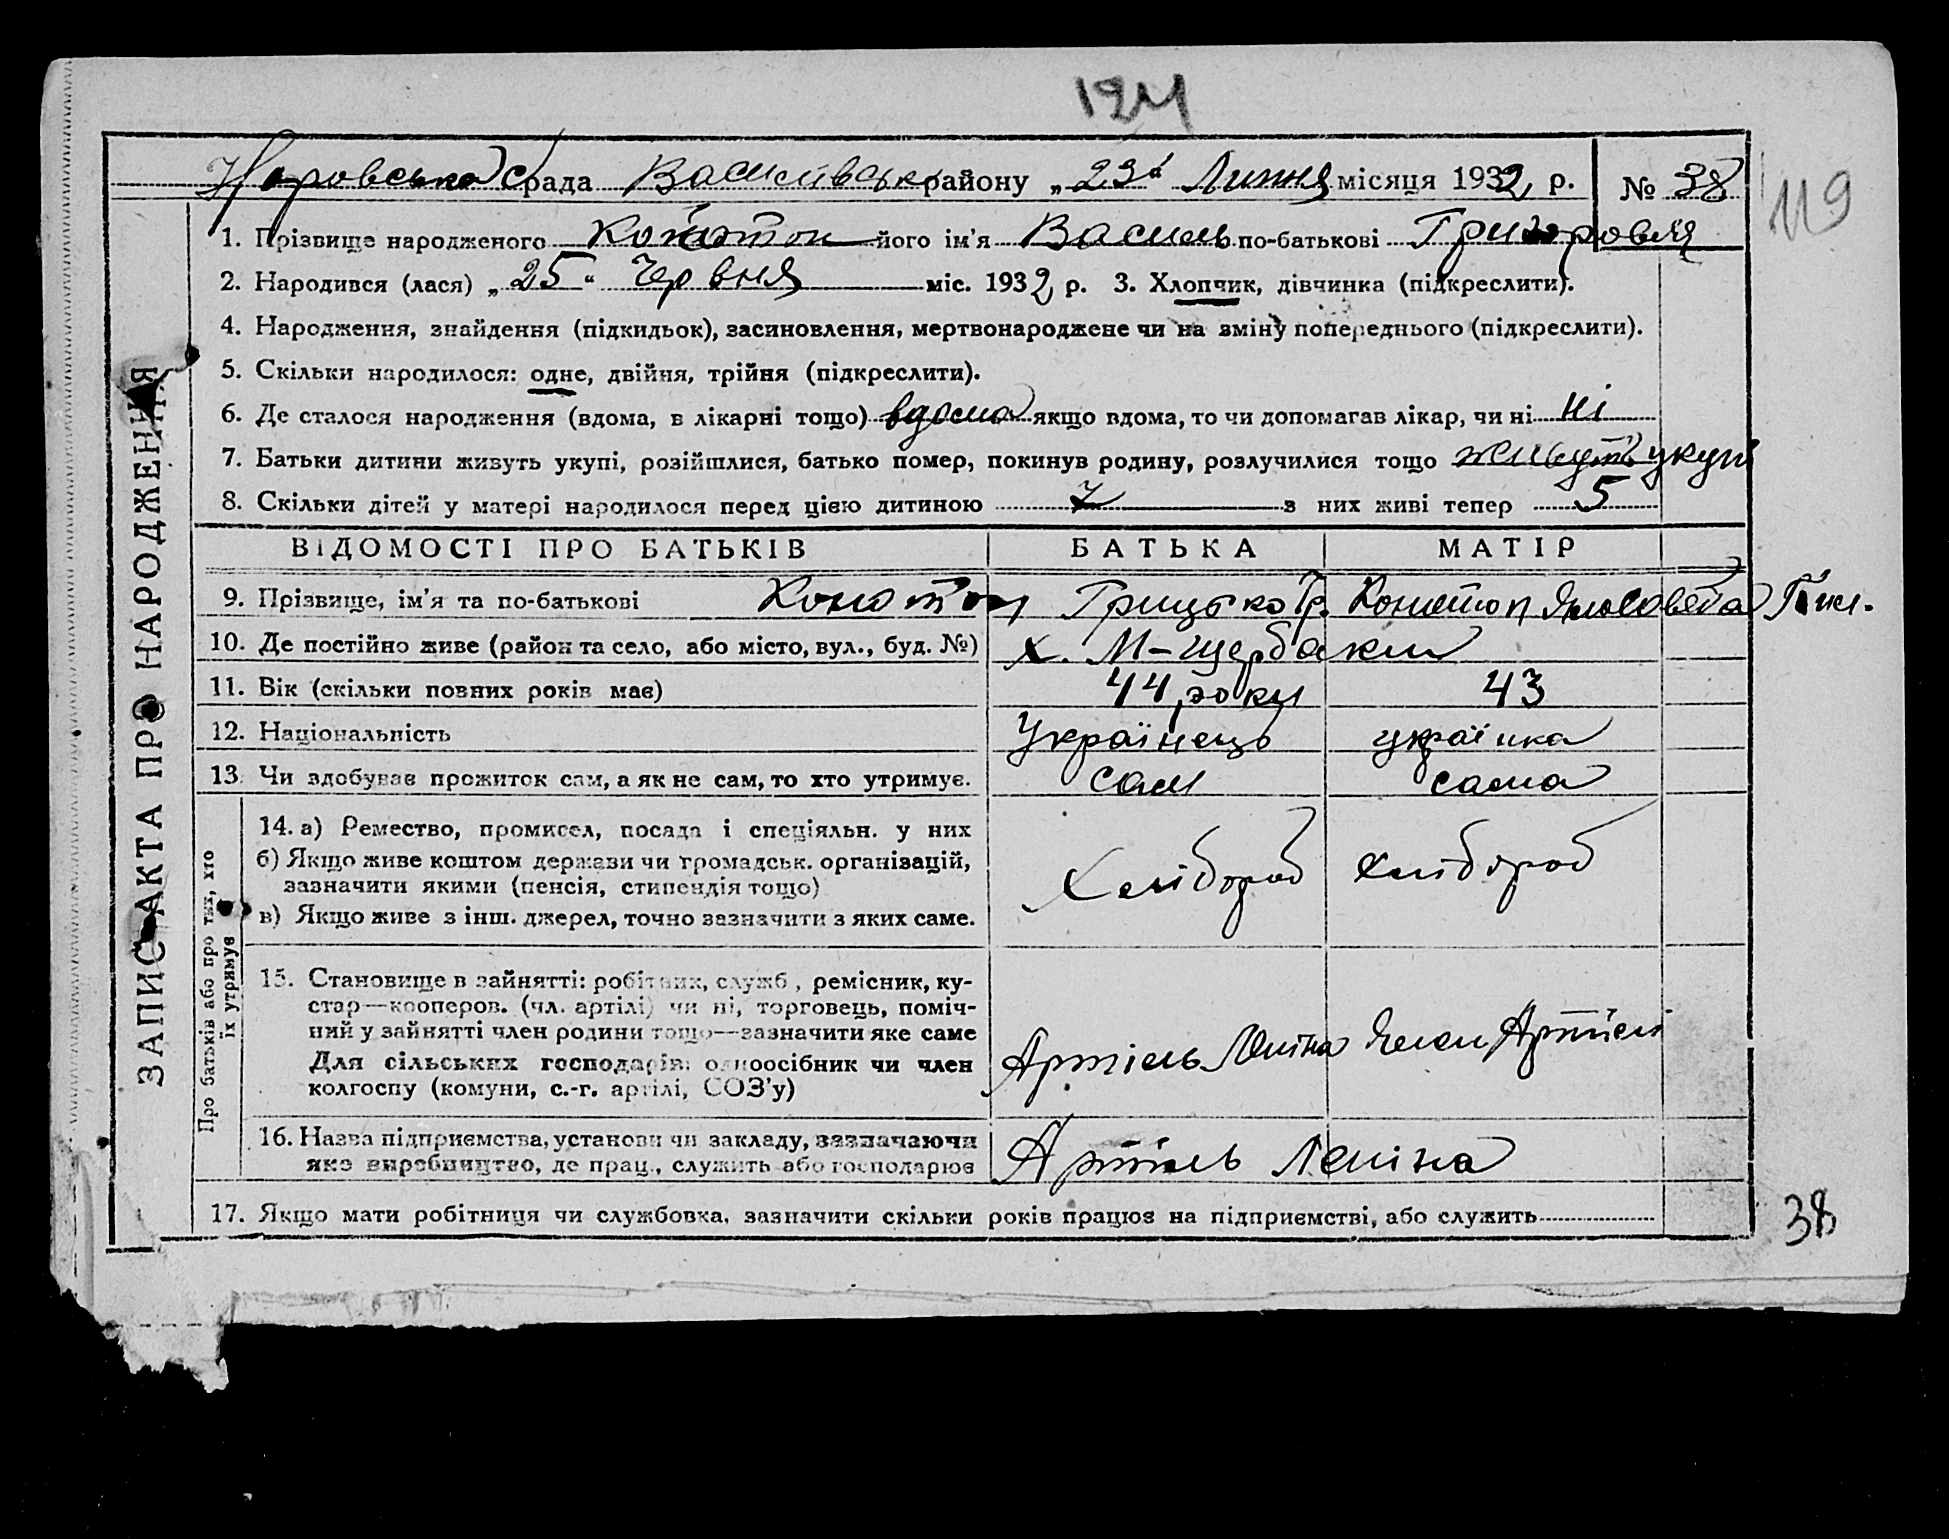 124
рада Василівськ району „23" Липня місяця 1932 р. № 38
119
1. Прізвище народженого Конотоп його ім'я Василь по-батькові Григоровня
2. Народився (лася) „25" Червня міс. 1932 р. 3. Хлопчик, дівчинка (підкреслити).
4. Народження, знайдення (підкидьок), засиновлення, мертвонароджене чи на зміну попереднього (підкреслити).
5. Скільки народилося: одне, двійня, трійня (підкреслити).
6. Де сталося народження (вдома, в лікарні тощо) вдома якщо вдома, то чи допомагав лікар, чи ні ні
7. Батьки дитини живуть укупі, розійшлися, батько помер, покинув родину, розлучилися тощо живуть укупі
8. Скільки дітей у матері народилося перед цією дитиною 7 з них живі тепер 5
ВІДОМОСТІ ПРО БАТЬКІВ БАТЬКА МАТІР
9. Прізвище, ім'я та по-батькові Конотоп Грицько Гр. Конотоп
10. Де постійно живе (район та село, або місто, вул., буд. №) х. М-Щербаки
11. Вік (скільки повних років має) 44 роки 43
12. Національність Українець українка
13. Чи здобуває прожиток сам, а як не сам, то хто утримує. сам сама
14. а) Ремество, промисел, посада і спеціяльн. у них
б) Якщо живе коштом держави чи громадськ. організацій,
зазначити якими (пенсія, стипендія тощо)
в) Якщо живе з інш. джерел, точно зазначити з яких саме.
Хлібороб хлібороб
15. Становище в зайнятті: робітник, служб., ремісник, ку-
стар—кооперов. (чл. артілі) чи ні, торговець, поміч-
ний у зайнятті член родини тощо—зазначити яке саме
Для сільських господарів: одноосібник чи член
колгоспу (комуни, с.-г. артілі, СОЗ'у)
Артіль Леніна Член Артілі
16. Назва підприємства, установи чи закладу, зазначаючи
яке виробництво, де прац., служить або господарює
Артіль Леніна
17. Якщо мати робітниця чи службовка, зазначити скільки років працює на підприємстві, або служить
38
ЗАПИС АКТА ПРО НАРОДЖЕННЯ
Про батьків або про тих, хто
їх утримує